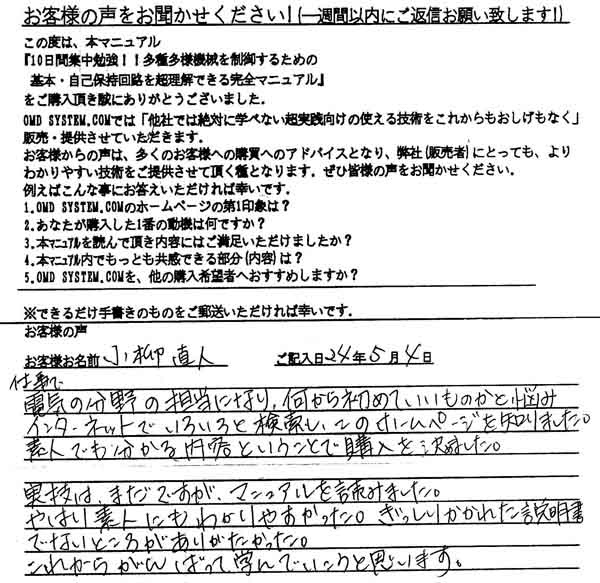 お客様の声をお聞かせください！(一週間以内にご返信お願い致します！)
この度は、本マニュアル
『10日間集中勉強！！多種多様機械を制御するための
基本・自己保持回路を超理解できる完全マニュアル』
をご購入頂き誠にありがとうございました。
OMD SYSTEM.COMでは「他社では絶対に学べない超実践向けの使える技術をこれからもおしげもなく」
販売・提供させていただきます。
お客様からの声は、多くのお客様への購買へのアドバイスとなり、弊社(販売者)にとっても、より
わかりやすい技術をご提供させて頂く種となります。ぜひ皆様の声をお聞かせください。
例えばこんな事にお答えいただければ幸いです。
1.OMD SYSTEM.COMのホームページの第1印象は？
2.あなたが購入した1番の動機は何ですか？
3.本マニュアルを読んで頂き内容にはご満足いただけましたか？
4.本マニュアル内でもっとも共感できる部分(内容)は？
5.OMD SYSTEM.COMを、他の購入希望者へおすすめしますか？
※できるだけ手書きのものをご郵送いただければ幸いです。
お客様の声
お客様お名前 小柳直人 ご記入日24年5月4日
仕事で
電気の分野の担当になり、何から初めていいものかと悩み
インターネットでいろいろと検索し、このホームページを知りました。
素人でも分かる内容ということで購入を決めました。
実技は、まだですが、マニュアルを読みました。
やはり素人にもわかりやすかった。ぎっしりかかれた説明書
でないところがありがたかった。
これからがんばって学んでいこうと思います。